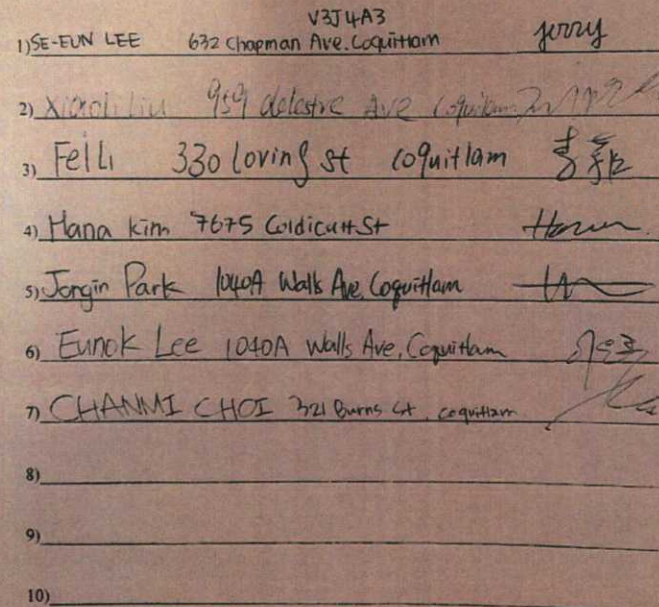 V3J4A3
1) SE-EUN LEE 632 Chapman Ave. Coquitlam jerry
2) Xiaoli Liu 959 delestre Ave Coquitlam
3) Fei Li 330 Loving st Coquitlam
4) Hana Kim 7675 Coldicutt St
5) Jongin Park 1040A Walls Ave, Coquitlam
6) Eunok Lee 1040A Walls Ave, Coquitlam
7) CHANMI CHOI 321 Burns St, coquitlam
8)
9)
10)